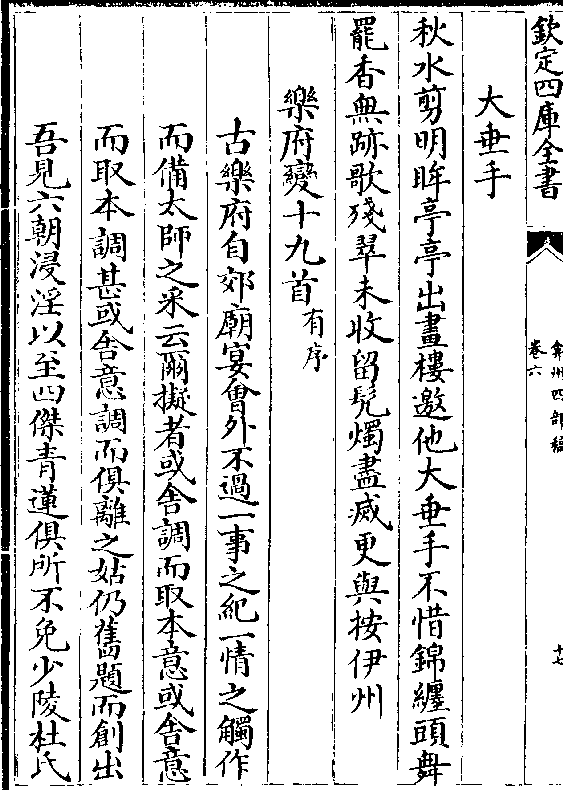 欽定四庫全書
弇州四部稿
卷六
十七
大垂手
秋水剪明眸亭亭出畫樓邀他大垂手不惜錦纏頭舞
罷香無跡歌殘翠未收留髠燭盡滅更與按伊州
樂府變十九首有序
古樂府自郊廟宴會外不過一事之紀一情之觸作
而備太師之采云爾擬者或舍調而取本意或舍意
而取本調甚或舍意調而俱離之姑仍舊題而創出
吾見六朝浸淫以至四傑青蓮俱所不免少陵杜氏